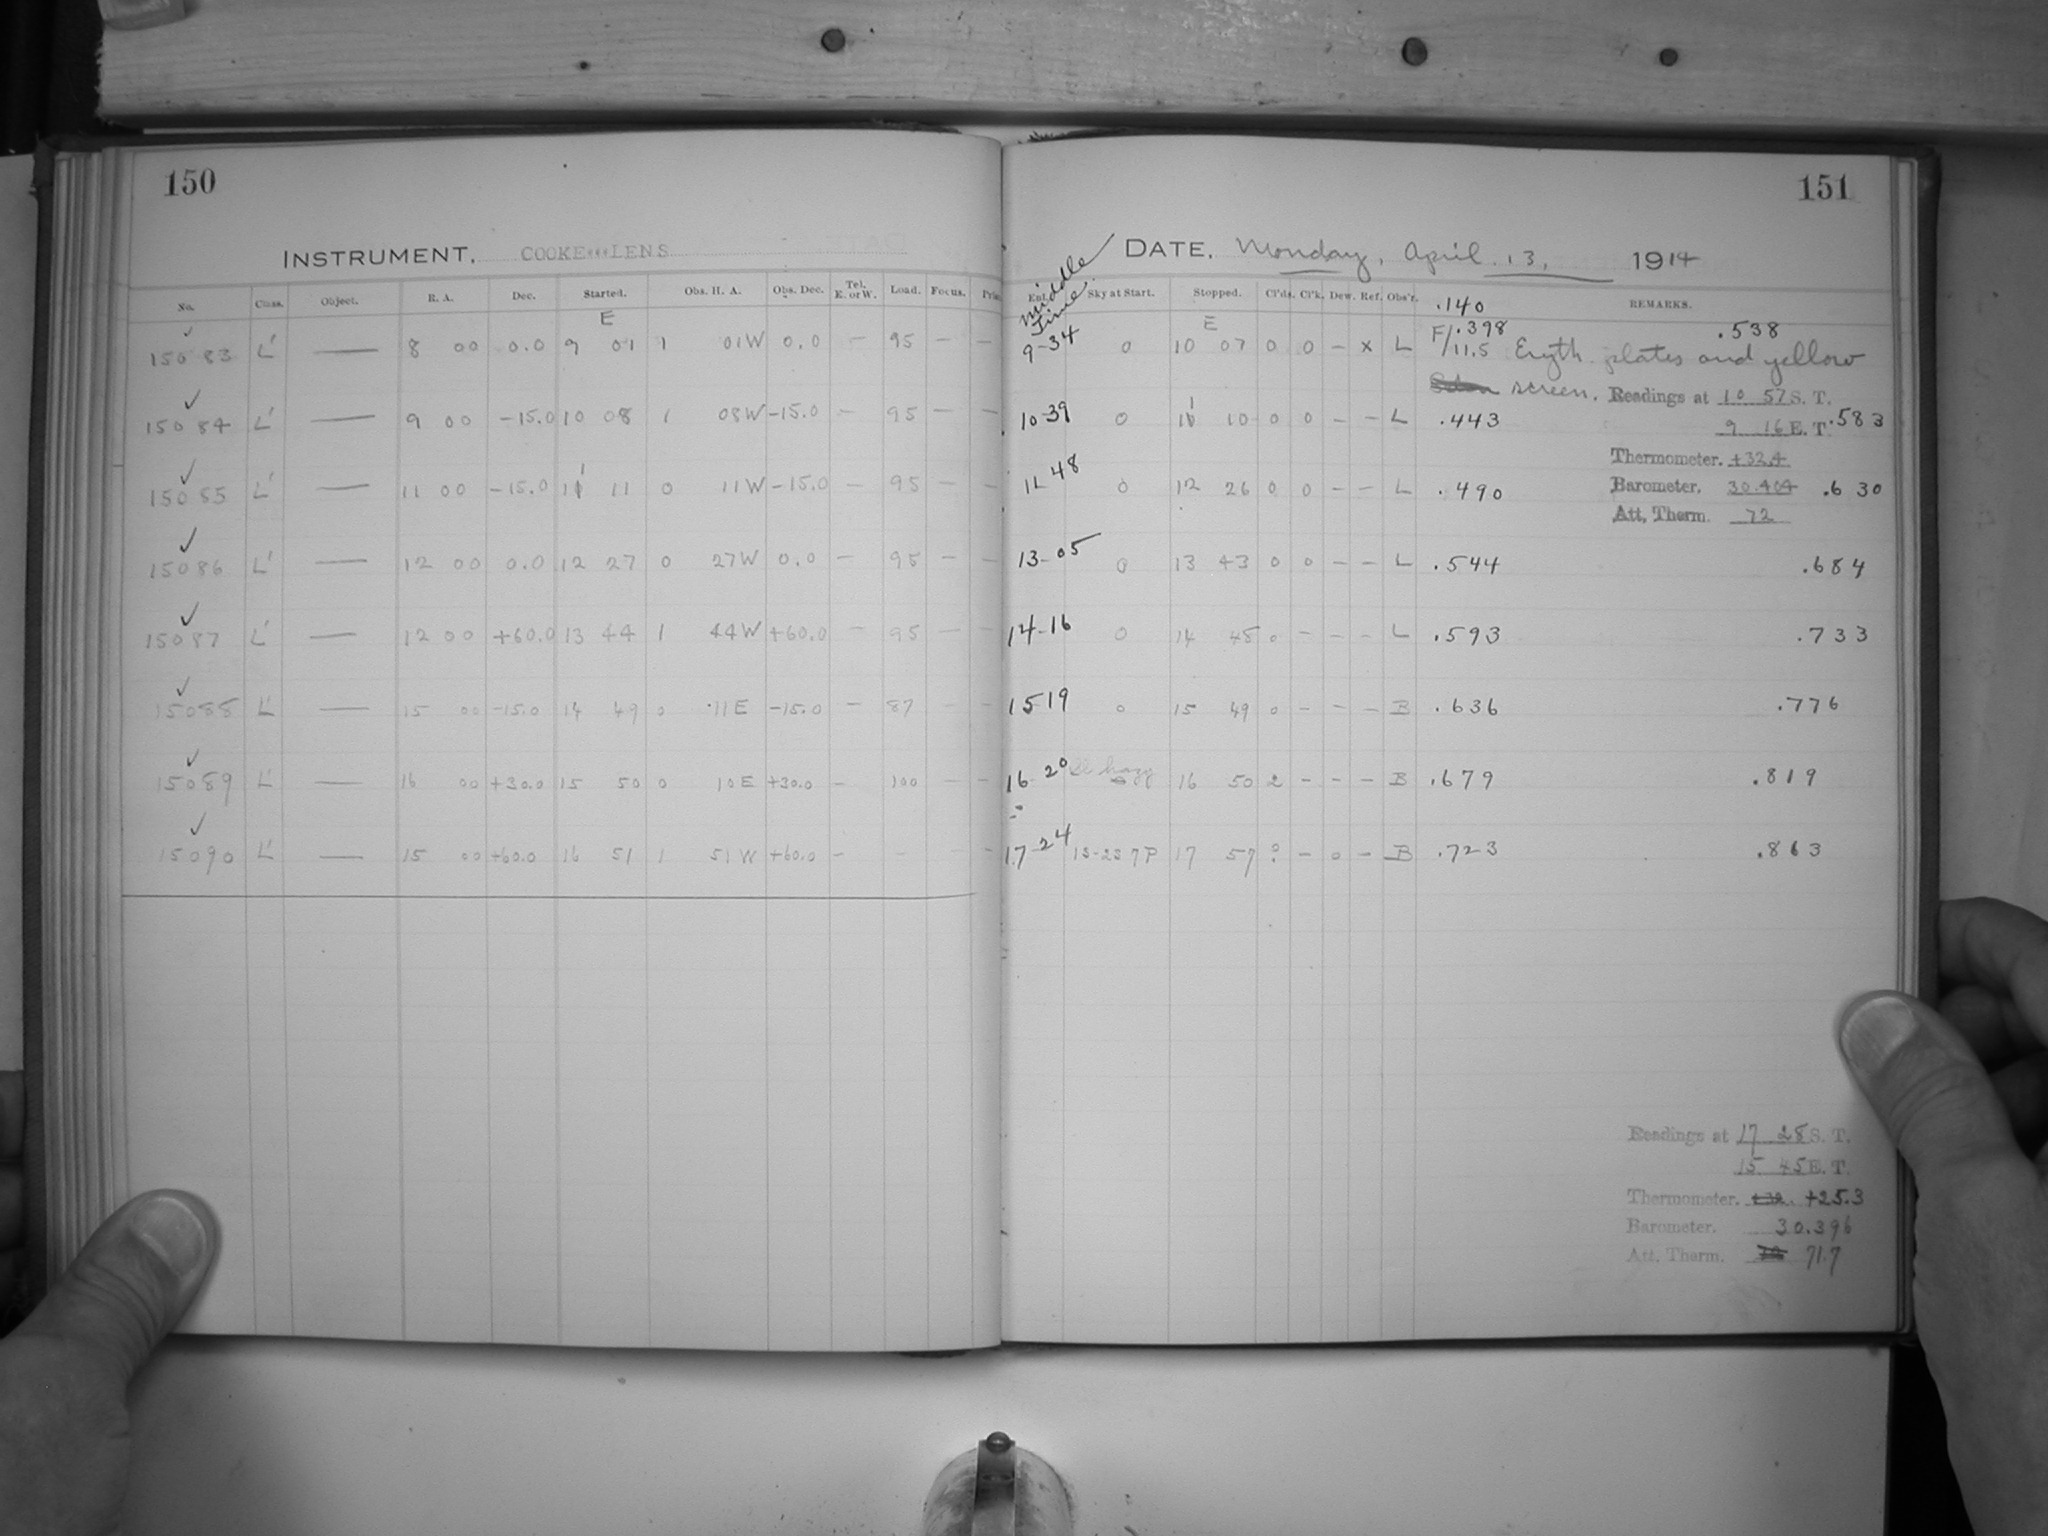 150
INSTRUMENT. COOKE LENS
No. Class. Object. R. A. Dec. Started. Obs. H. A. Obs. Dec. Tel. E. or W. Load. Focus.
15083 L' — 8 00 0.0 E 9 01 1 01 W 0.0 — 95 — —
15084 L' — 9 00 -15.0 10 08 1 08 W -15.0 — 95 — —
15085 L' — 11 00 -15.0 11 11 0 11 W -15.0 — 95 — —
15086 L' — 12 00 0.0 12 27 0 27 W 0.0 — 95 — —
15087 L' — 12 00 +60.0 13 44 1 44 W +60.0 — 95 — —
15088 L' — 15 00 -15.0 14 49 0 11 E -15.0 — 87 — —
15089 L' — 16 00 +30.0 15 50 0 10 E +30.0 — 100 — —
15090 L' — 15 00 +60.0 16 51 1 51 W +60.0 — — — —
151
DATE, Monday, April 13, 1914
Middle Time Sky at Start. Stopped. Cl'ds. Cl'k. Dew. Ref. Obs'r. .140 REMARKS.
9-34 0 E 10 07 0 0 — x L F/11.5 .398 .538
Eryth plates and yellow
screen. Readings at 10 57 S. T.
10-39 0 11 10 0 0 — — L .443 9 16 E. T. .583
Thermometer. +32.4
11 48 0 12 26 0 0 — — L .490 Barometer. 30.404 .630
Att. Therm. 72
13-05 0 13 43 0 0 — — L .544 .684
14-16 0 14 48 0 — — — L .593 .733
15 19 0 15 49 0 — — — B .636 .776
16-20 Sl hazy 16 50 2 — — — B .679 .819
17-24 13-23 7P 17 57 ? — 0 — B .723 .863
Readings at 17 28 S. T.
15 45 E. T.
Thermometer. +25.3
Barometer. 30.396
Att. Therm. 71.7